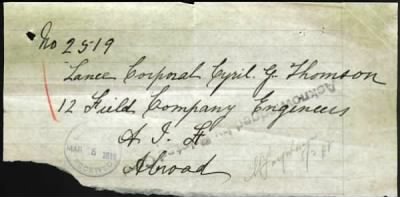 No 2519
Lance Corporal Cyril. G. Thomson
12 Field Company Engineers
A. I. F
Abroad
Acknowledged by
MAR 5
RECEIVED